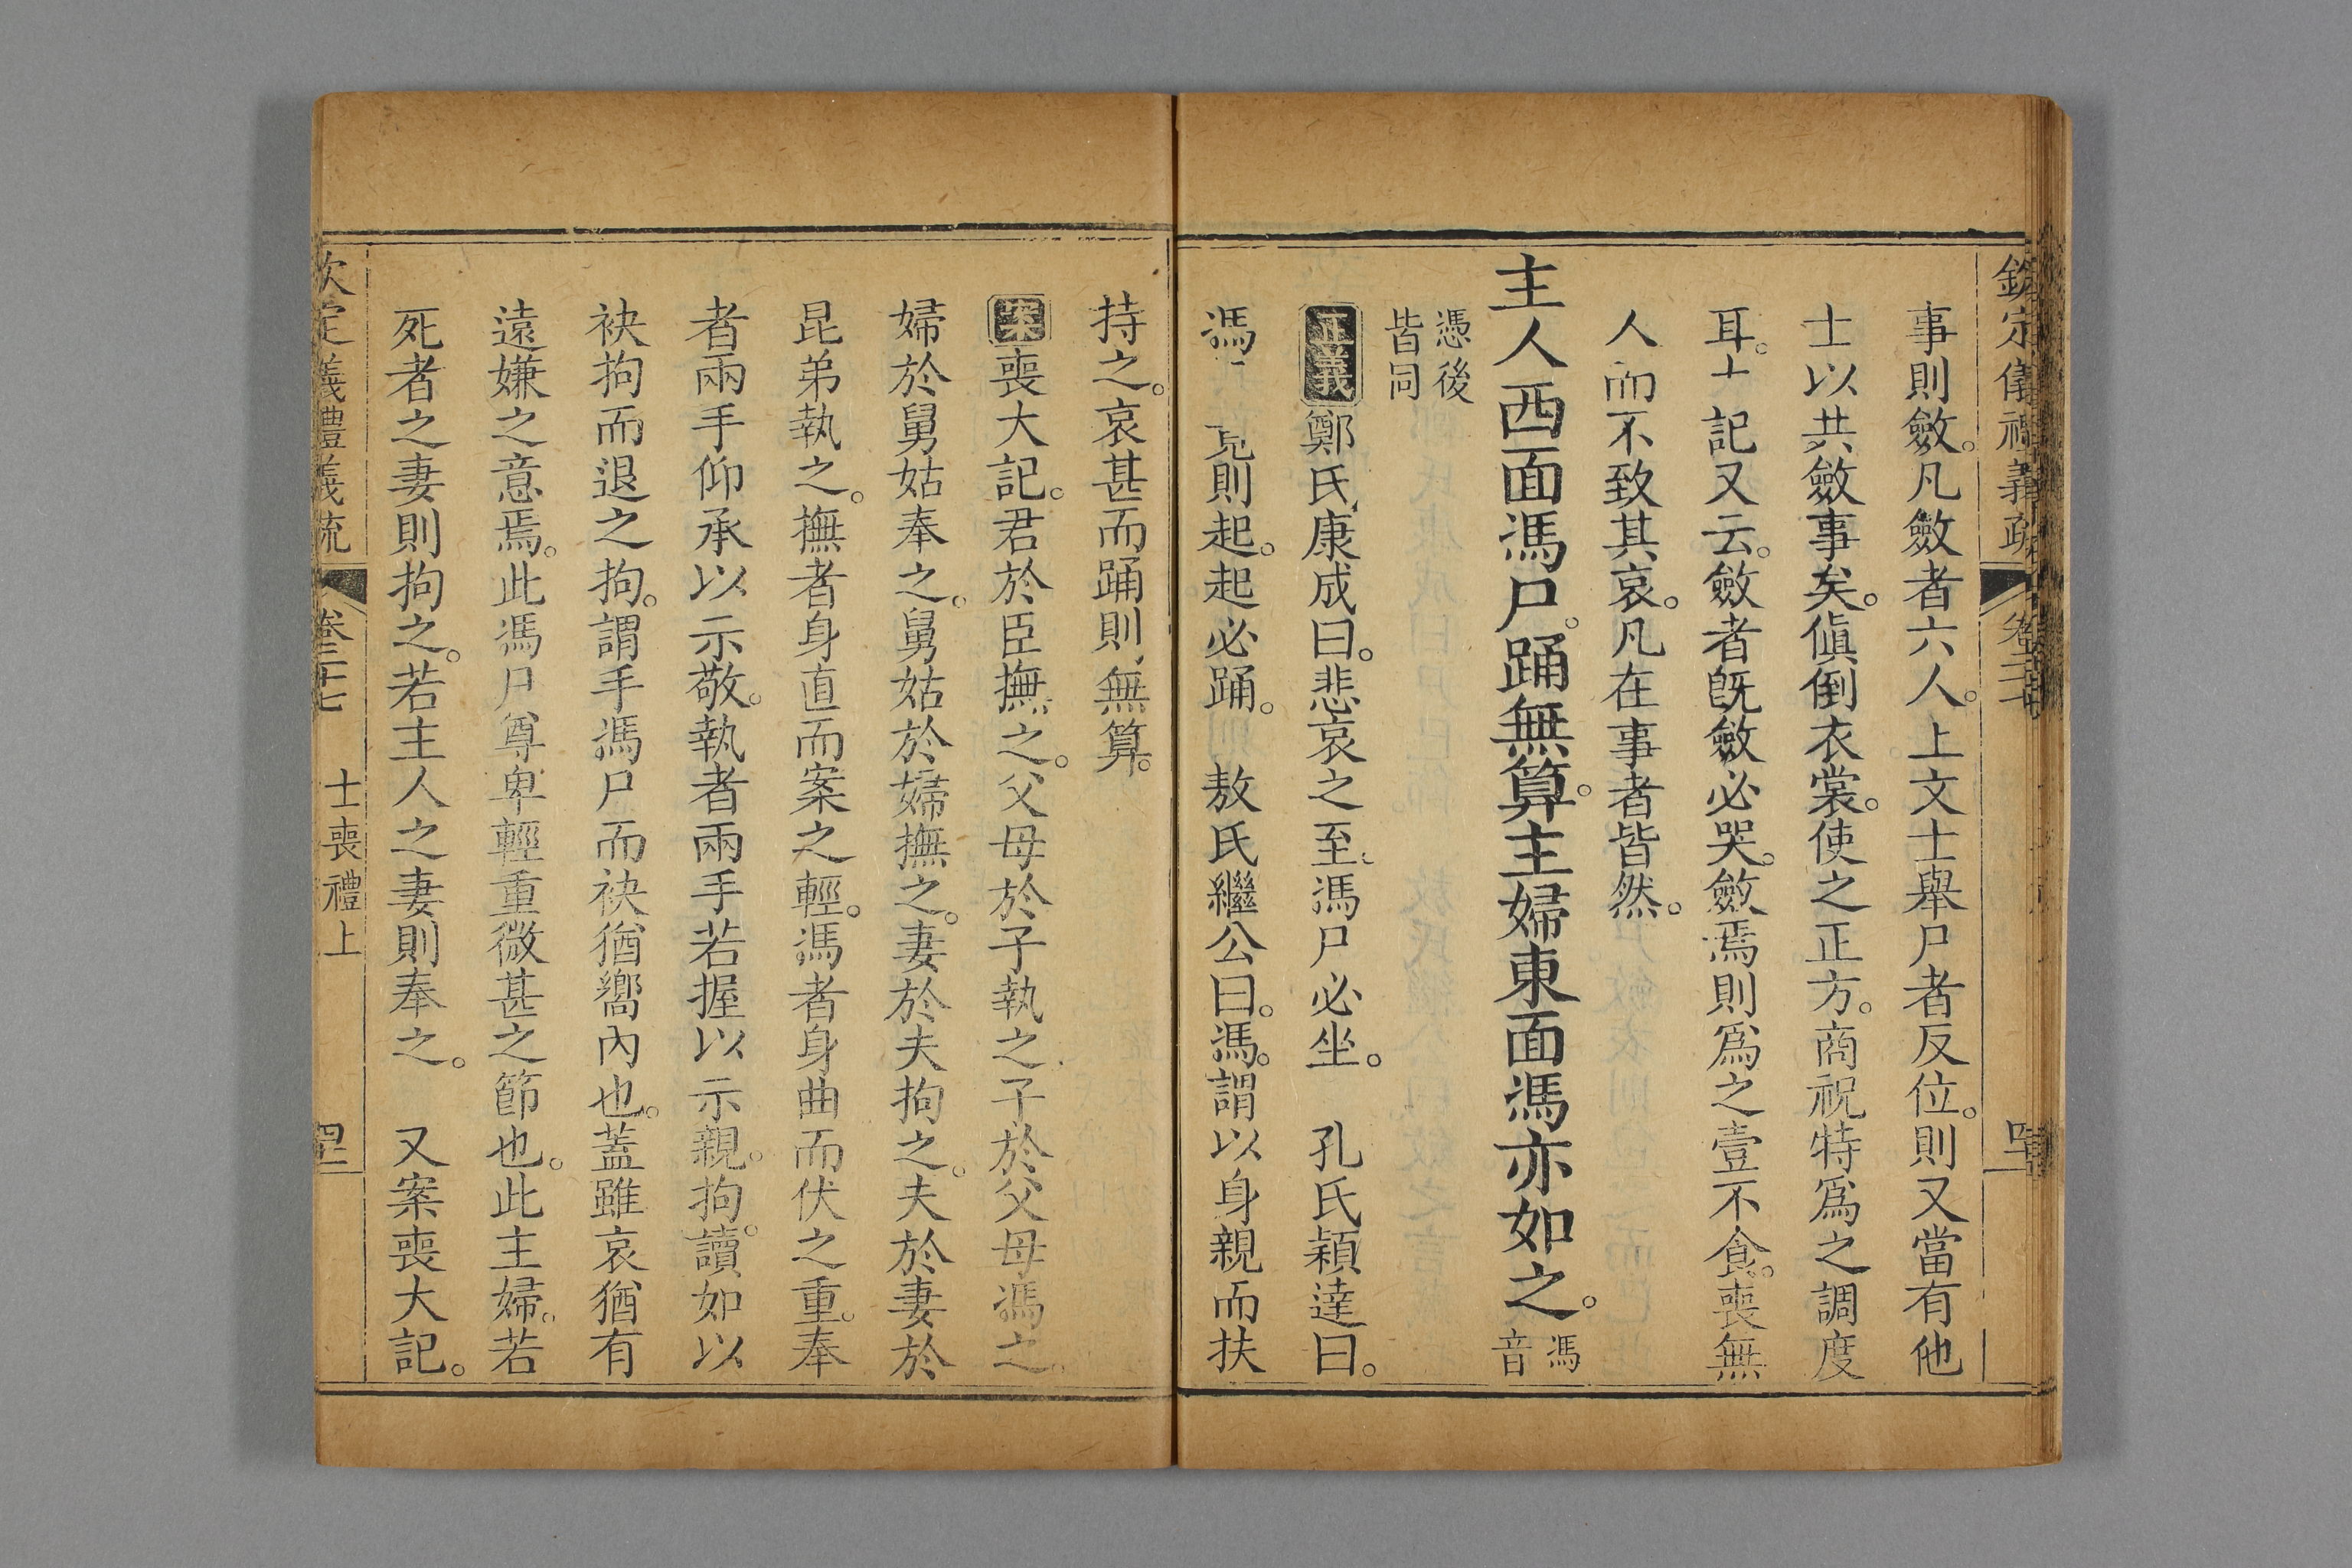 欽定儀禮義疏 卷二十七
事則斂。凡斂者六人。上文士舉尸者反位。則又當有他
士以共斂事矣。傎倒衣裳。使之正方。商祝特爲之調度
耳。 記又云。斂者旣斂必哭。斂焉則爲之壹不食。喪無
人而不致其哀。凡在事者皆然。
主人西面馮尸。踊無算。主婦東面馮亦如之。馮音
憑後
皆同
正義鄭氏康成曰。悲哀之至。馮尸必坐。 孔氏穎達曰。
馮 則起。起必踊。 敖氏繼公曰。馮。謂以身親而扶
持之。哀甚而踊則無算。
案喪大記。君於臣撫之。父母於子執之子於父母馮之。
婦於舅姑奉之。舅姑於婦撫之。妻於夫拘之。夫於妻於
昆弟執之。撫者身直而案之輕。馮者身曲而伏之重。奉
者兩手仰承以示敬。執者兩手若握以示親。拘。讀如以
袂拘而退之拘。謂手馮尸而袂猶嚮內也。蓋雖哀猶有
遠嫌之意焉。此馮尸尊卑輕重微甚之節也。此主婦。若
死者之妻則拘之。若主人之妻則奉之。 又案喪大記。
欽定義禮義疏 卷二十七 士喪禮上